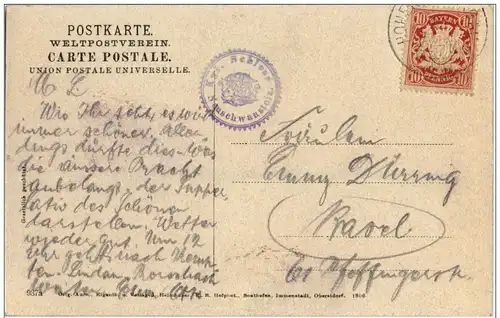 POSTKARTE.
WELTPOSTVEREIN.
CARTE POSTALE.
UNION POSTALE UNIVERSELLE.
Kgl. Schloss
Neuschwanstein.
BAYERN
10 PFENNIG 10
M. L.
Wie Ihr seht, es wird
immer schöner. Aller-
dings dürfte dies was
die äussere Pracht
anbelangt, der Super-
lativ des Schönen
darstellen. Wetter
wieder gut. Um 12
Uhr geht's nach Kemp-
ten-Lindau, Rorschach
Fräulein
Emmy Dürring
Basel
61 Pfeffingerstr.
Gesetzlich geschützt.
Immenstadt, Oberstdorf. 1906